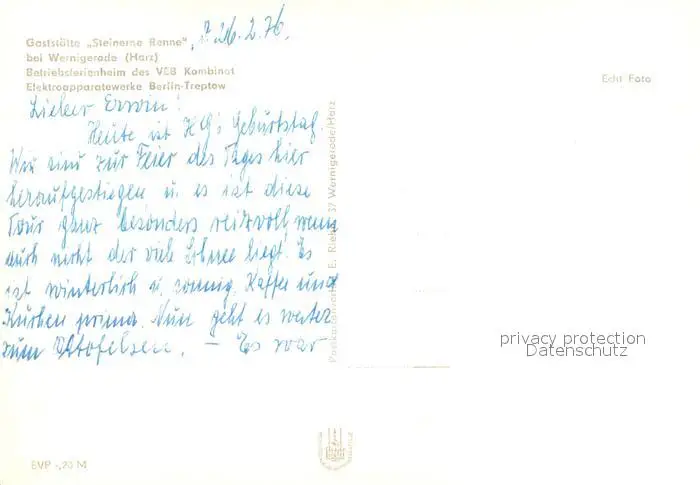 Gaststätte „Steinerne Renne",
bei Wernigerode (Harz)
Betriebsferienheim des VEB Kombinat
Elektroapparatewerke Berlin-Treptow
26.2.76.
Echt Foto
Lieber Erwin!
Heute ist HG's Geburtstag.
Wir sind zur Feier des Tages hier
heraufgestiegen u. es ist diese
Tour ganz besonders reizvoll, wenn
auch nicht der viele Schnee liegt. Es
ist winterlich u. sonnig. Kaffee und
Kuchen prima. Nun geht es weiter
zum Ottofelsen. – Es war
E. Riehn 37 Wernigerode/Harz
privacy protection
Datenschutz
EVP -,20 M